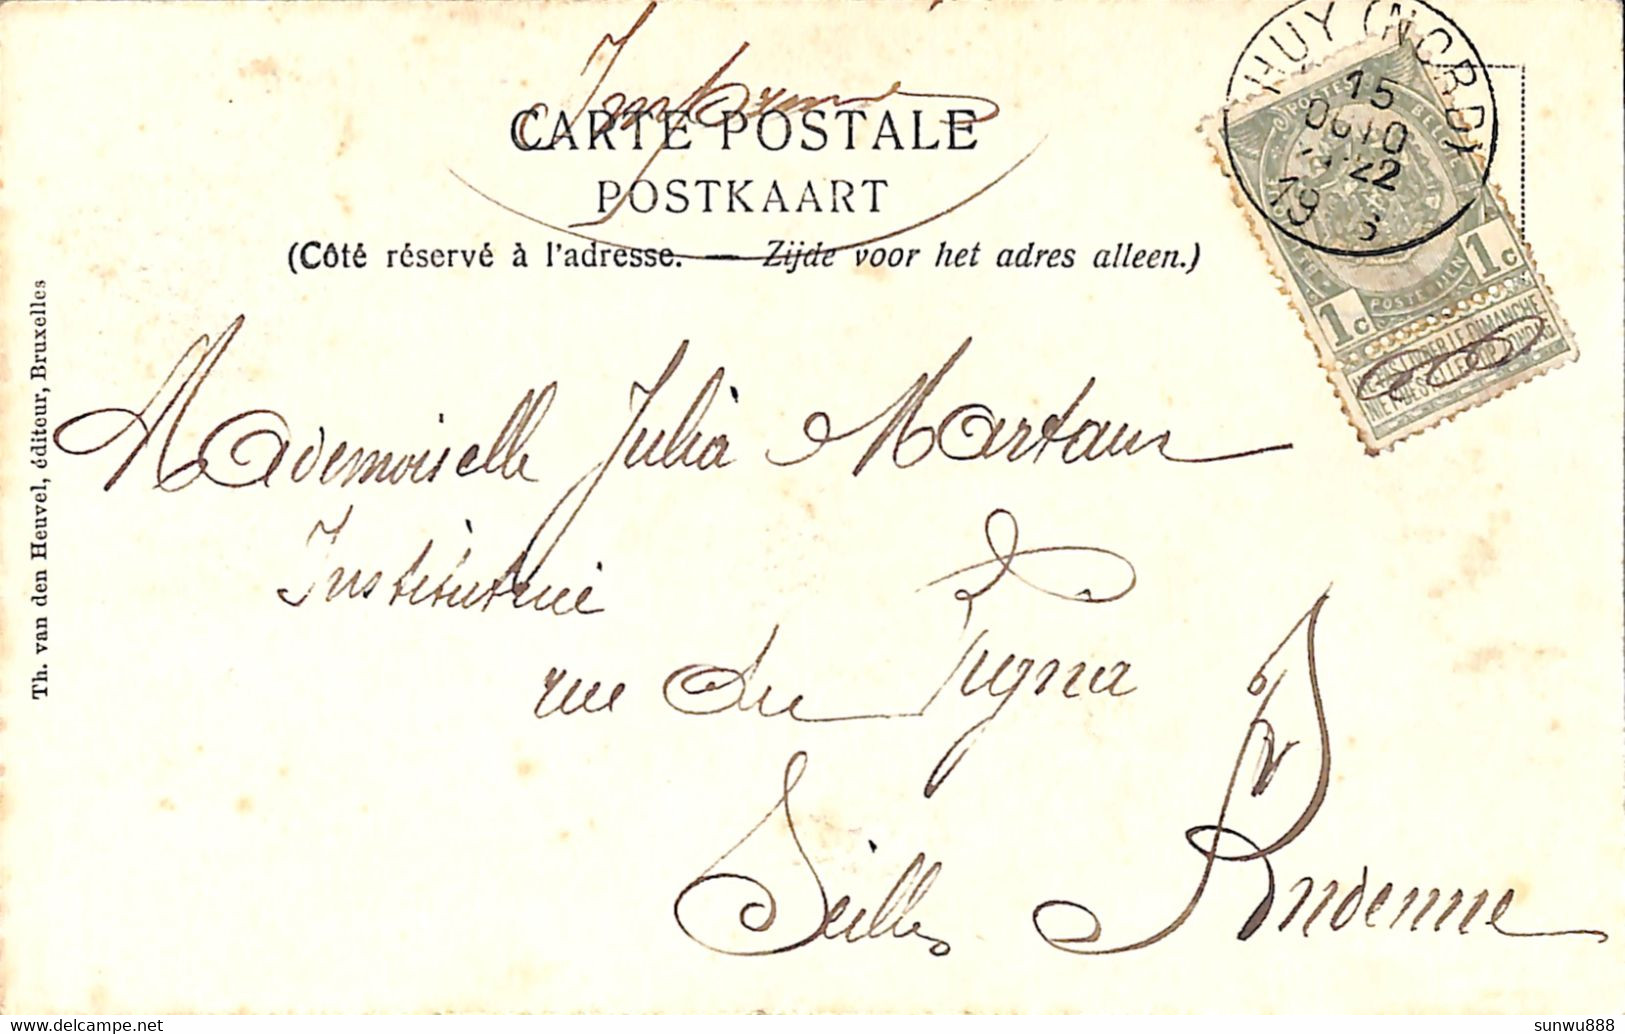 Imprimé
CARTE POSTALE
POSTKAART
(Côté réservé à l'adresse. — Zijde voor het adres alleen.)
Th. van den Heuvel, éditeur, Bruxelles
HUY (NORD)
15
19
22
POSTES BELGE
POSTERIJEN
1c 1c
NE PAS LIVRER LE DIMANCHE
NIET BESTELLEN OP ZONDAG
Mademoiselle Julia
Institutrice
rue du
Seilles
Andenne
sunwu888